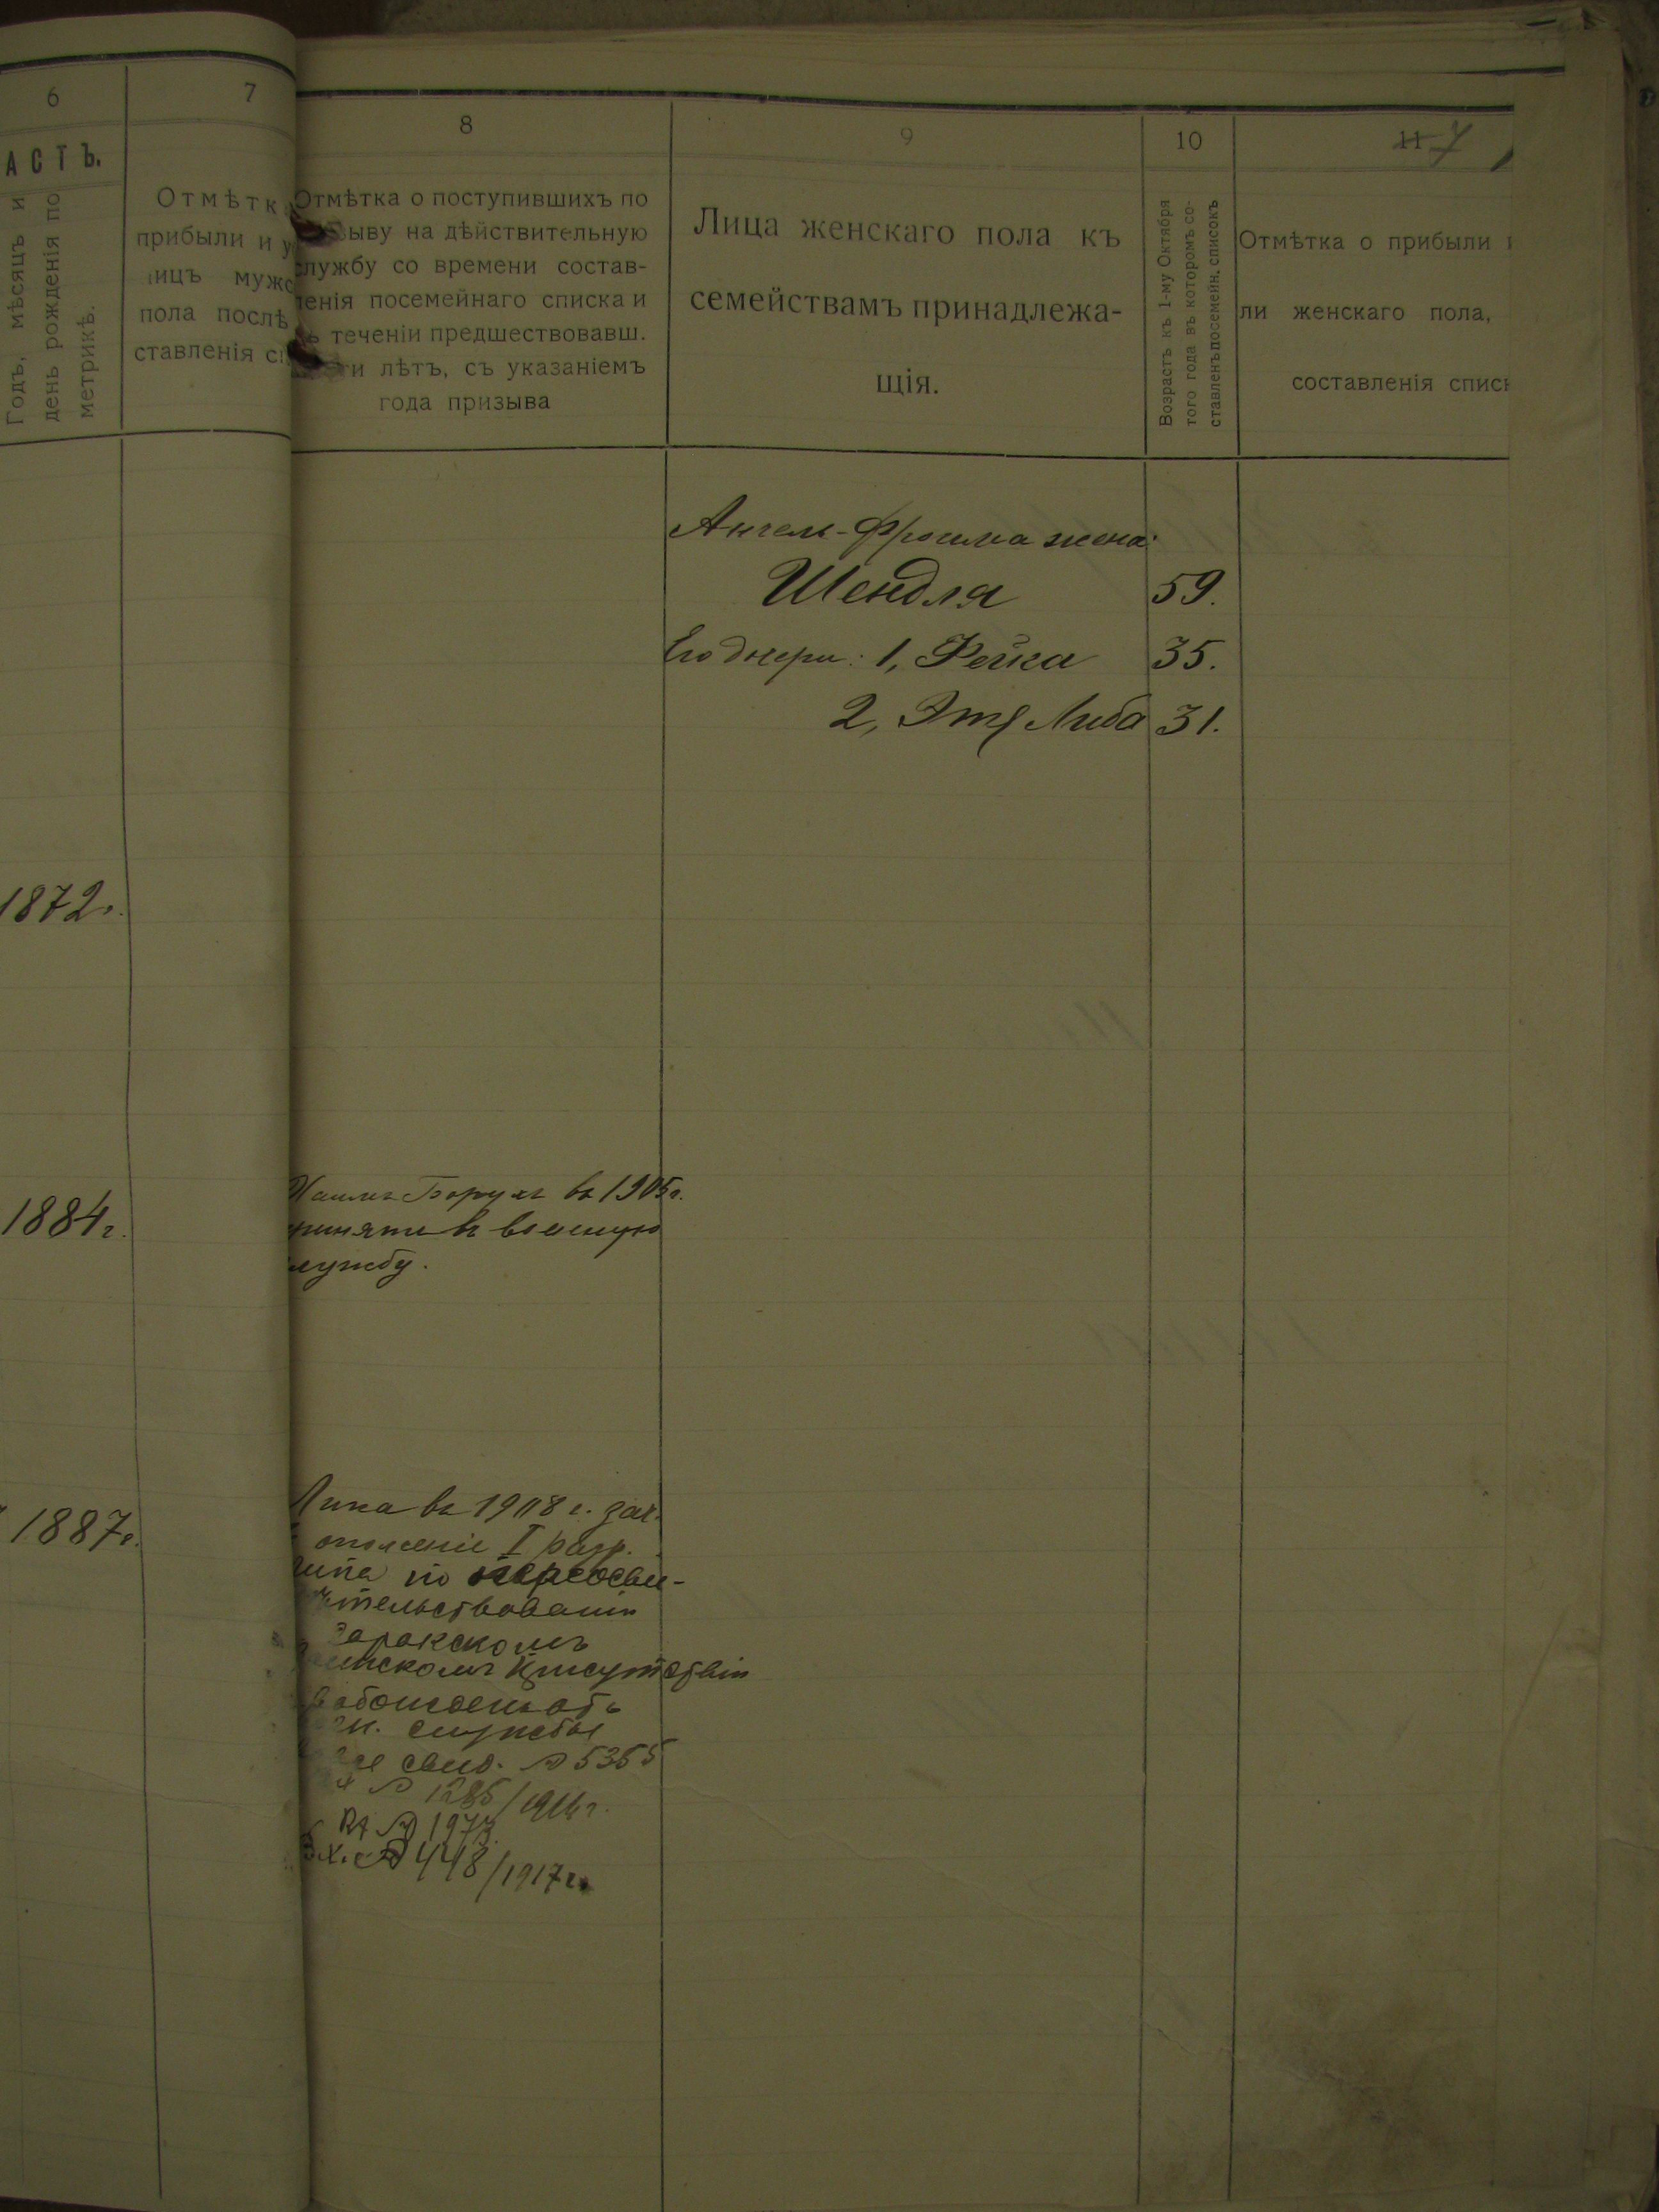 6
АСТЪ.
Годъ, мѣсяцъ и
день рожденія по
метрикѣ.
7
Отмѣтк
прибыли и у
ицъ мужс
пола послѣ
ставленія с
8
Отмѣтка о поступившихъ по
ыву на дѣйствительную
службу со времени состав-
ленія посемейнаго списка и
теченіи предшествовавш.
ти лѣтъ, съ указаніемъ
года призыва
9
Лица женскаго пола къ
семействамъ принадлежа-
щія.
10
Возрастъ къ 1-му Октября
того года въ которомъ со-
ставленъ посемейн. списокъ
11 7
Отмѣтка о прибыли
ли женскаго пола,
составленія списк
Ангель-Фроима жена:
Шендля 59.
Его дочери: 1, Рейка 35.
2, Этя Либа 31.
1872г.
1884г.
Хаимъ Борухъ въ 1905г.
принятъ въ военную
службу.
1887г.
въ 1908 г. зач.
ополченіе I разр.
по переосви-
тельствованіи
Присутствіи
службы
свид. № 5355
№ 1285/1916 г.
№ 1973
Вх. № 448/1917 г.